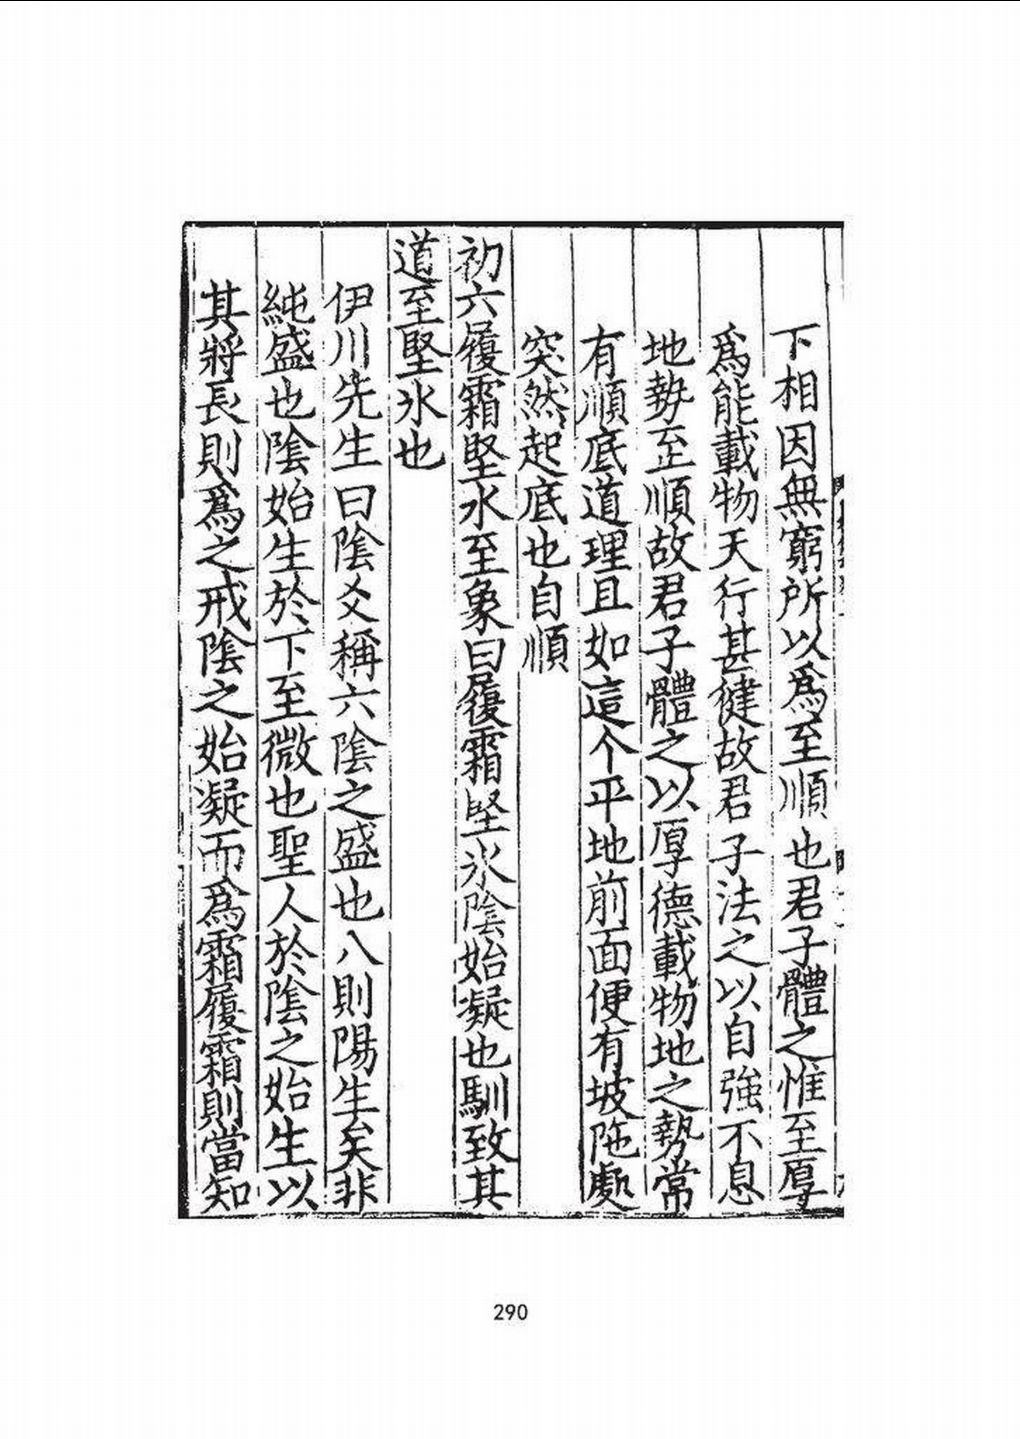 下相因無窮所以爲至順也君子體之惟至厚
爲能載物天行甚健故君子法之以自強不息
地勢至順故君子體之以厚德載物地之勢常
有順底道理且如這个平地前面便有坡陁處
突然起底也自順
初六履霜堅氷至象曰履霜堅氷陰始凝也馴致其
道至堅氷也
伊川先生曰陰爻稱六陰之盛也八則陽生矣非
純盛也陰始生於下至微也聖人於陰之始生以
其將長則爲之戒陰之始凝而爲霜履霜則當知
290